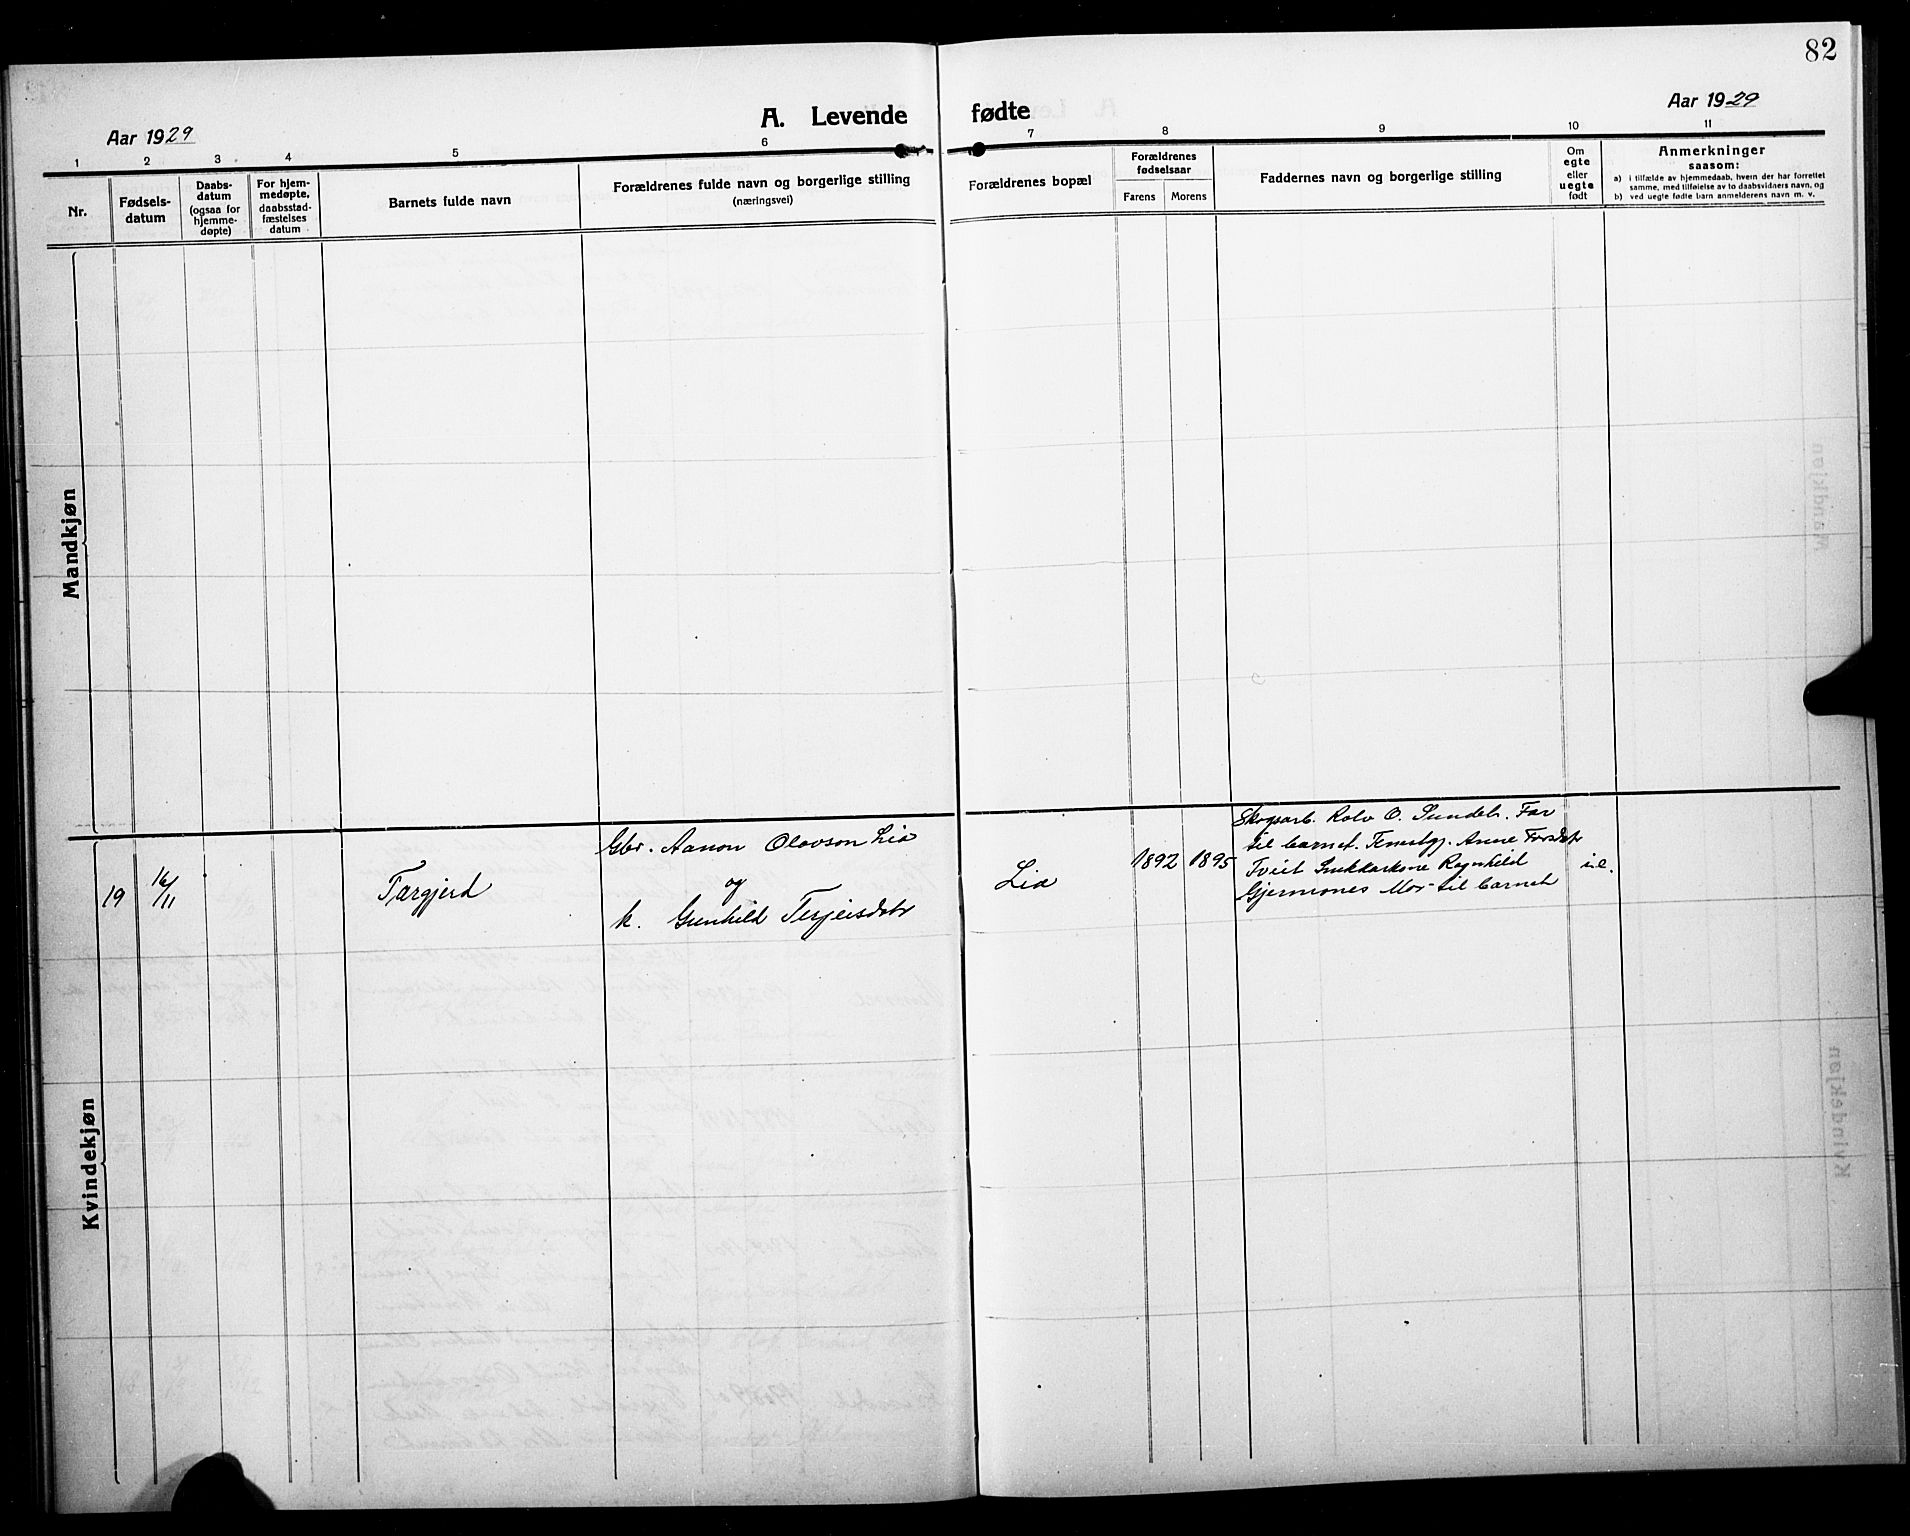 82
A. Levende fødte
Aar 1929
Aar 1929
1
2
3
4
5
6
7
8
9
10
11
Nr.
Fødsels-
datum
Daabs-
datum
(ogsaa for
hjemme-
døpte)
For hjem-
medøpte,
daabsstad-
fæstelses
datum
Barnets fulde navn
Forældrenes fulde navn og borgerlige stilling
(næringsvei)
Forældrenes bopæl
Forældrenes
fødselsaar
Farens
Morens
Faddernes navn og borgerlige stilling
Om
egte
eller
uegte
født
Anmerkninger
saasom:
a) i tilfælde av hjemmedaab, hvem der har forrettet
samme, med tilføielse av to daabsvidners navn, og
b) ved uegte fødte barn anmelderens navn m. v.
Mandkjøn
Kvindekjøn
19
16/11
Targjerd
Gbr. Aanon Olavson Lid
og
k. Gunhild Terjeisdotr
Lid
1892
1895
Skogsarb. Rolv O. Sundeb. Far
til barnet. Anne
Tveit Ragnhild
Gjermones Mor til barnet